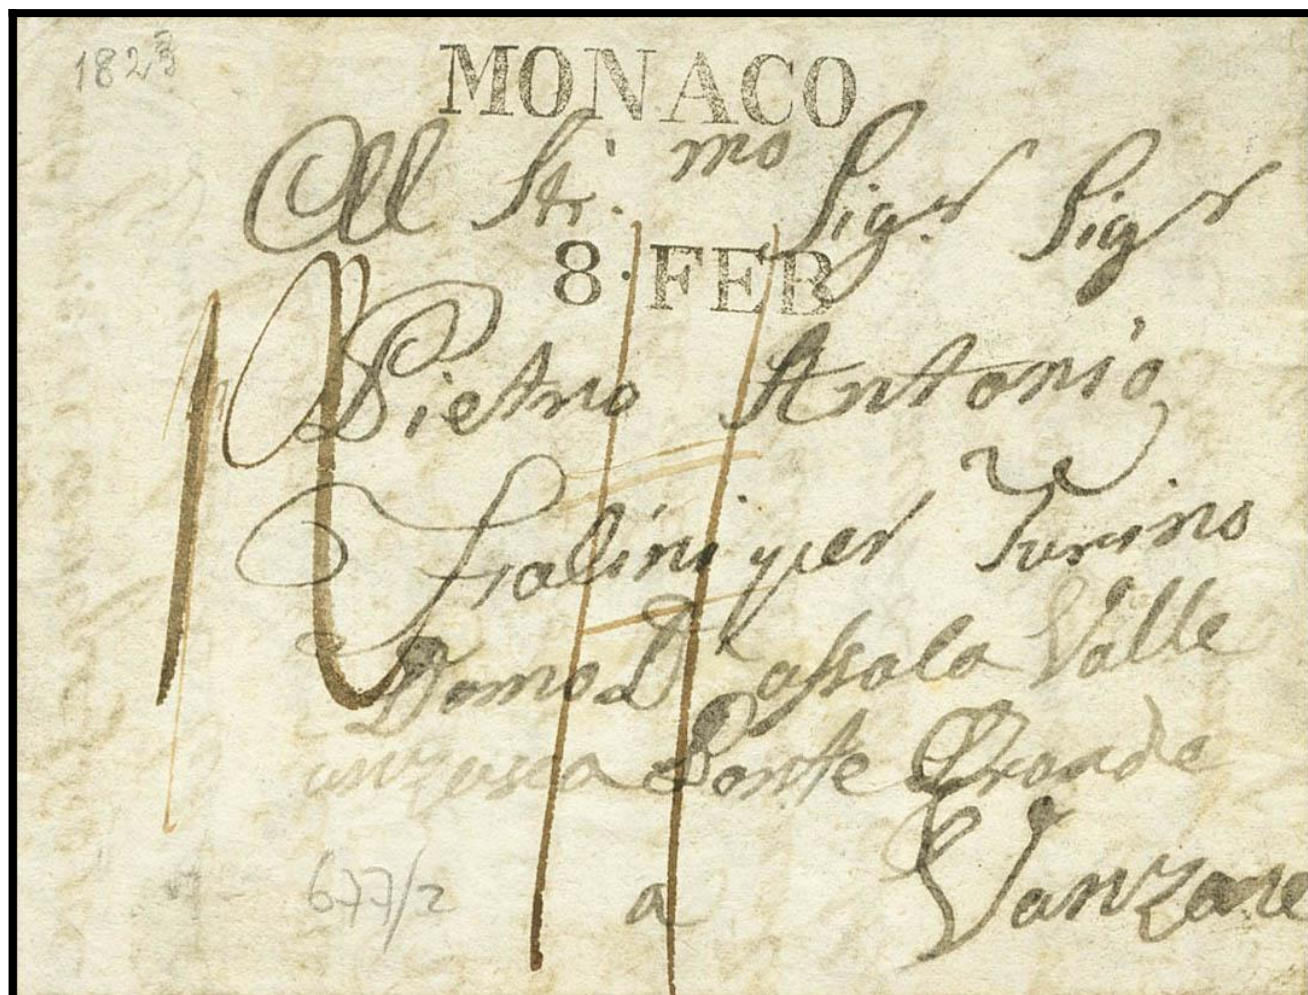 1823
MONACO
All Str. mo Sigr Sigr
8 · FEB
Pietro Antonio
per Turino
Domo D'assala Valle
anzasca Ponte Grande
677/2
a Vanzone